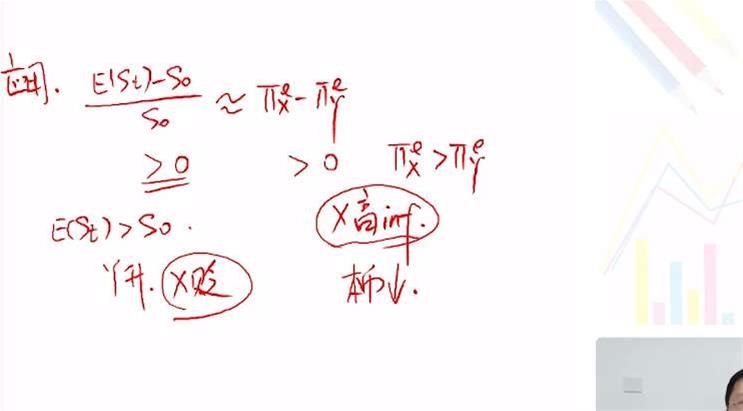 应用. (E(St)-S0)/S0 ≈ πₓᵉ-πᵧᵉ
>0 >0 πₓᵉ>πᵧᵉ
E(St)>S0. X高inf.
Y升. X贬 本币↓.